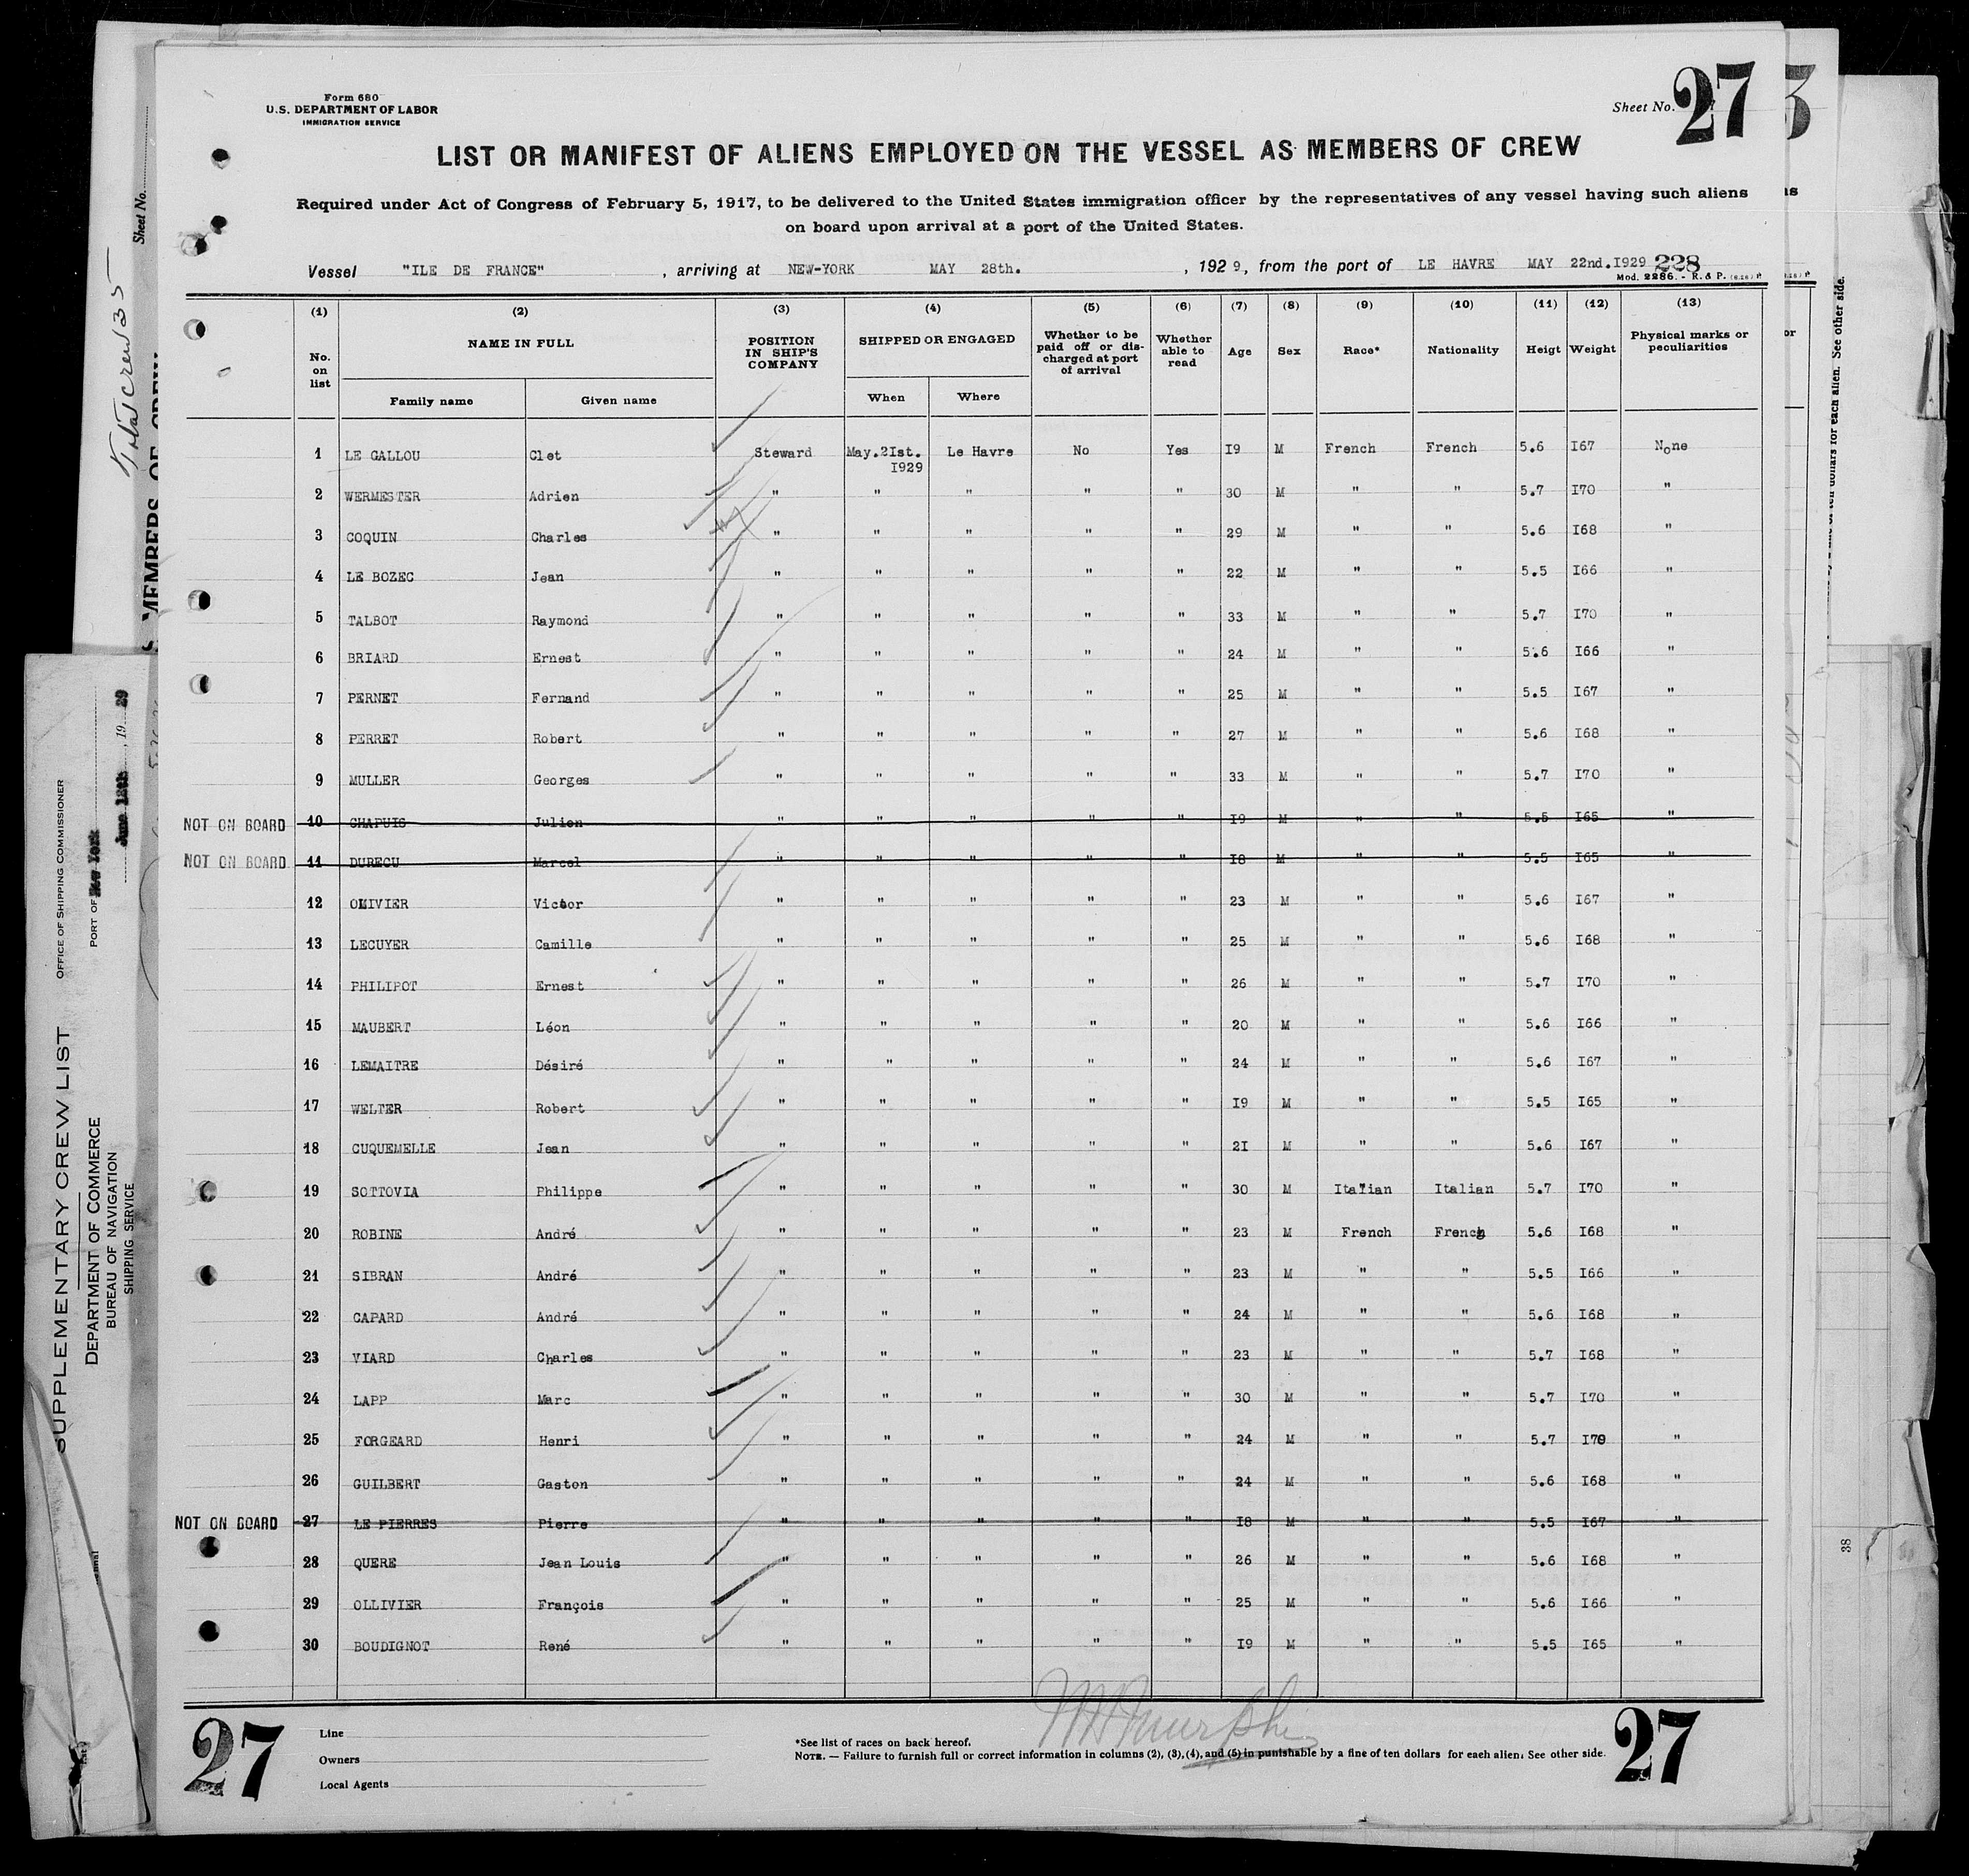 Form 680
U.S. DEPARTMENT OF LABOR
IMMIGRATION SERVICE
Sheet No. 27
LIST OR MANIFEST OF ALIENS EMPLOYED ON THE VESSEL AS MEMBERS OF CREW
Required under Act of Congress of February 5, 1917, to be delivered to the United States immigration officer by the representatives of any vessel having such aliens
on board upon arrival at a port of the United States.
Vessel "ILE DE FRANCE" , arriving at NEW-YORK MAY 28th. , 1929, from the port of LE HAVRE MAY 22nd.I929 228
Mod. 2286. - R. & P.
(1) (2) (3) (4) (5) (6) (7) (8) (9) (10) (11) (12) (13)
No. on list NAME IN FULL Family name Given name POSITION IN SHIP'S COMPANY SHIPPED OR ENGAGED When Where Whether to be paid off or discharged at port of arrival Whether able to read Age Sex Race* Nationality Heigt Weight Physical marks or peculiarities
1 LE GALLOU Clet Steward May.2Ist. I929 Le Havre No Yes I9 M French French 5.6 I67 None
2 WERMESTER Adrien " " " " " 30 M " " 5.7 I70 "
3 COQUIN Charles " " " " " 29 M " " 5.6 I68 "
4 LE BOZEC Jean " " " " " 22 M " " 5.5 I66 "
5 TALBOT Raymond " " " " " 33 M " " 5.7 I70 "
6 BRIARD Ernest " " " " " 24 M " " 5.6 I66 "
7 PERNET Fernand " " " " " 25 M " " 5.5 I67 "
8 PERRET Robert " " " " " 27 M " " 5.6 I68 "
9 MULLER Georges " " " " " 33 M " " 5.7 I70 "
NOT ON BOARD 10 CHAPUIS Julien " " " " " I9 M " " 5.5 I65 "
NOT ON BOARD 11 DURECU Marcel " " " " " I8 M " " 5.5 I65 "
12 OLIVIER Victor " " " " " 23 M " " 5.6 I67 "
13 LECUYER Camille " " " " " 25 M " " 5.6 I68 "
14 PHILIPOT Ernest " " " " " 26 M " " 5.7 I70 "
15 MAUBERT Léon " " " " " 20 M " " 5.6 I66 "
16 LEMAITRE Désiré " " " " " 24 M " " 5.6 I67 "
17 WELTER Robert " " " " " I9 M " " 5.5 I65 "
18 CUQUEMELLE Jean " " " " " 2I M " " 5.6 I67 "
19 SOTTOVIA Philippe " " " " " 30 M Italian Italian 5.7 I70 "
20 ROBINE André " " " " " 23 M French French 5.6 I68 "
21 SIBRAN André " " " " " 23 M " " 5.5 I66 "
22 CAPARD André " " " " " 24 M " " 5.6 I68 "
23 VIARD Charles " " " " " 23 M " " 5.7 I68 "
24 LAPP Marc " " " " " 30 M " " 5.7 I70 "
25 FORGEARD Henri " " " " " 24 M " " 5.7 I70 "
26 GUILBERT Gaston " " " " " 24 M " " 5.6 I68 "
NOT ON BOARD 27 LE PIERRES Pierre " " " " " I8 M " " 5.5 I67 "
28 QUERE Jean Louis " " " " " 26 M " " 5.6 I68 "
29 OLLIVIER François " " " " " 25 M " " 5.6 I66 "
30 BOUDIGNOT René " " " " " I9 M " " 5.5 I65 "
27
Line
Owners
Local Agents
*See list of races on back hereof.
NOTE. — Failure to furnish full or correct information in columns (2), (3), (4), and (5) in punishable by a fine of ten dollars for each alien. See other side.
27
Sheet No.
Total crew 135
SUPPLEMENTARY CREW LIST
DEPARTMENT OF COMMERCE
BUREAU OF NAVIGATION
SHIPPING SERVICE
OFFICE OF SHIPPING COMMISSIONER
PORT OF New York
June 12th, 1929
for each alien. See other side.
38